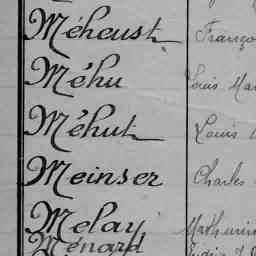 Méheust Franço
Méhu Louis Mar
Méhut Louis
Meinser Charles
Melay Mathurin
Ménard